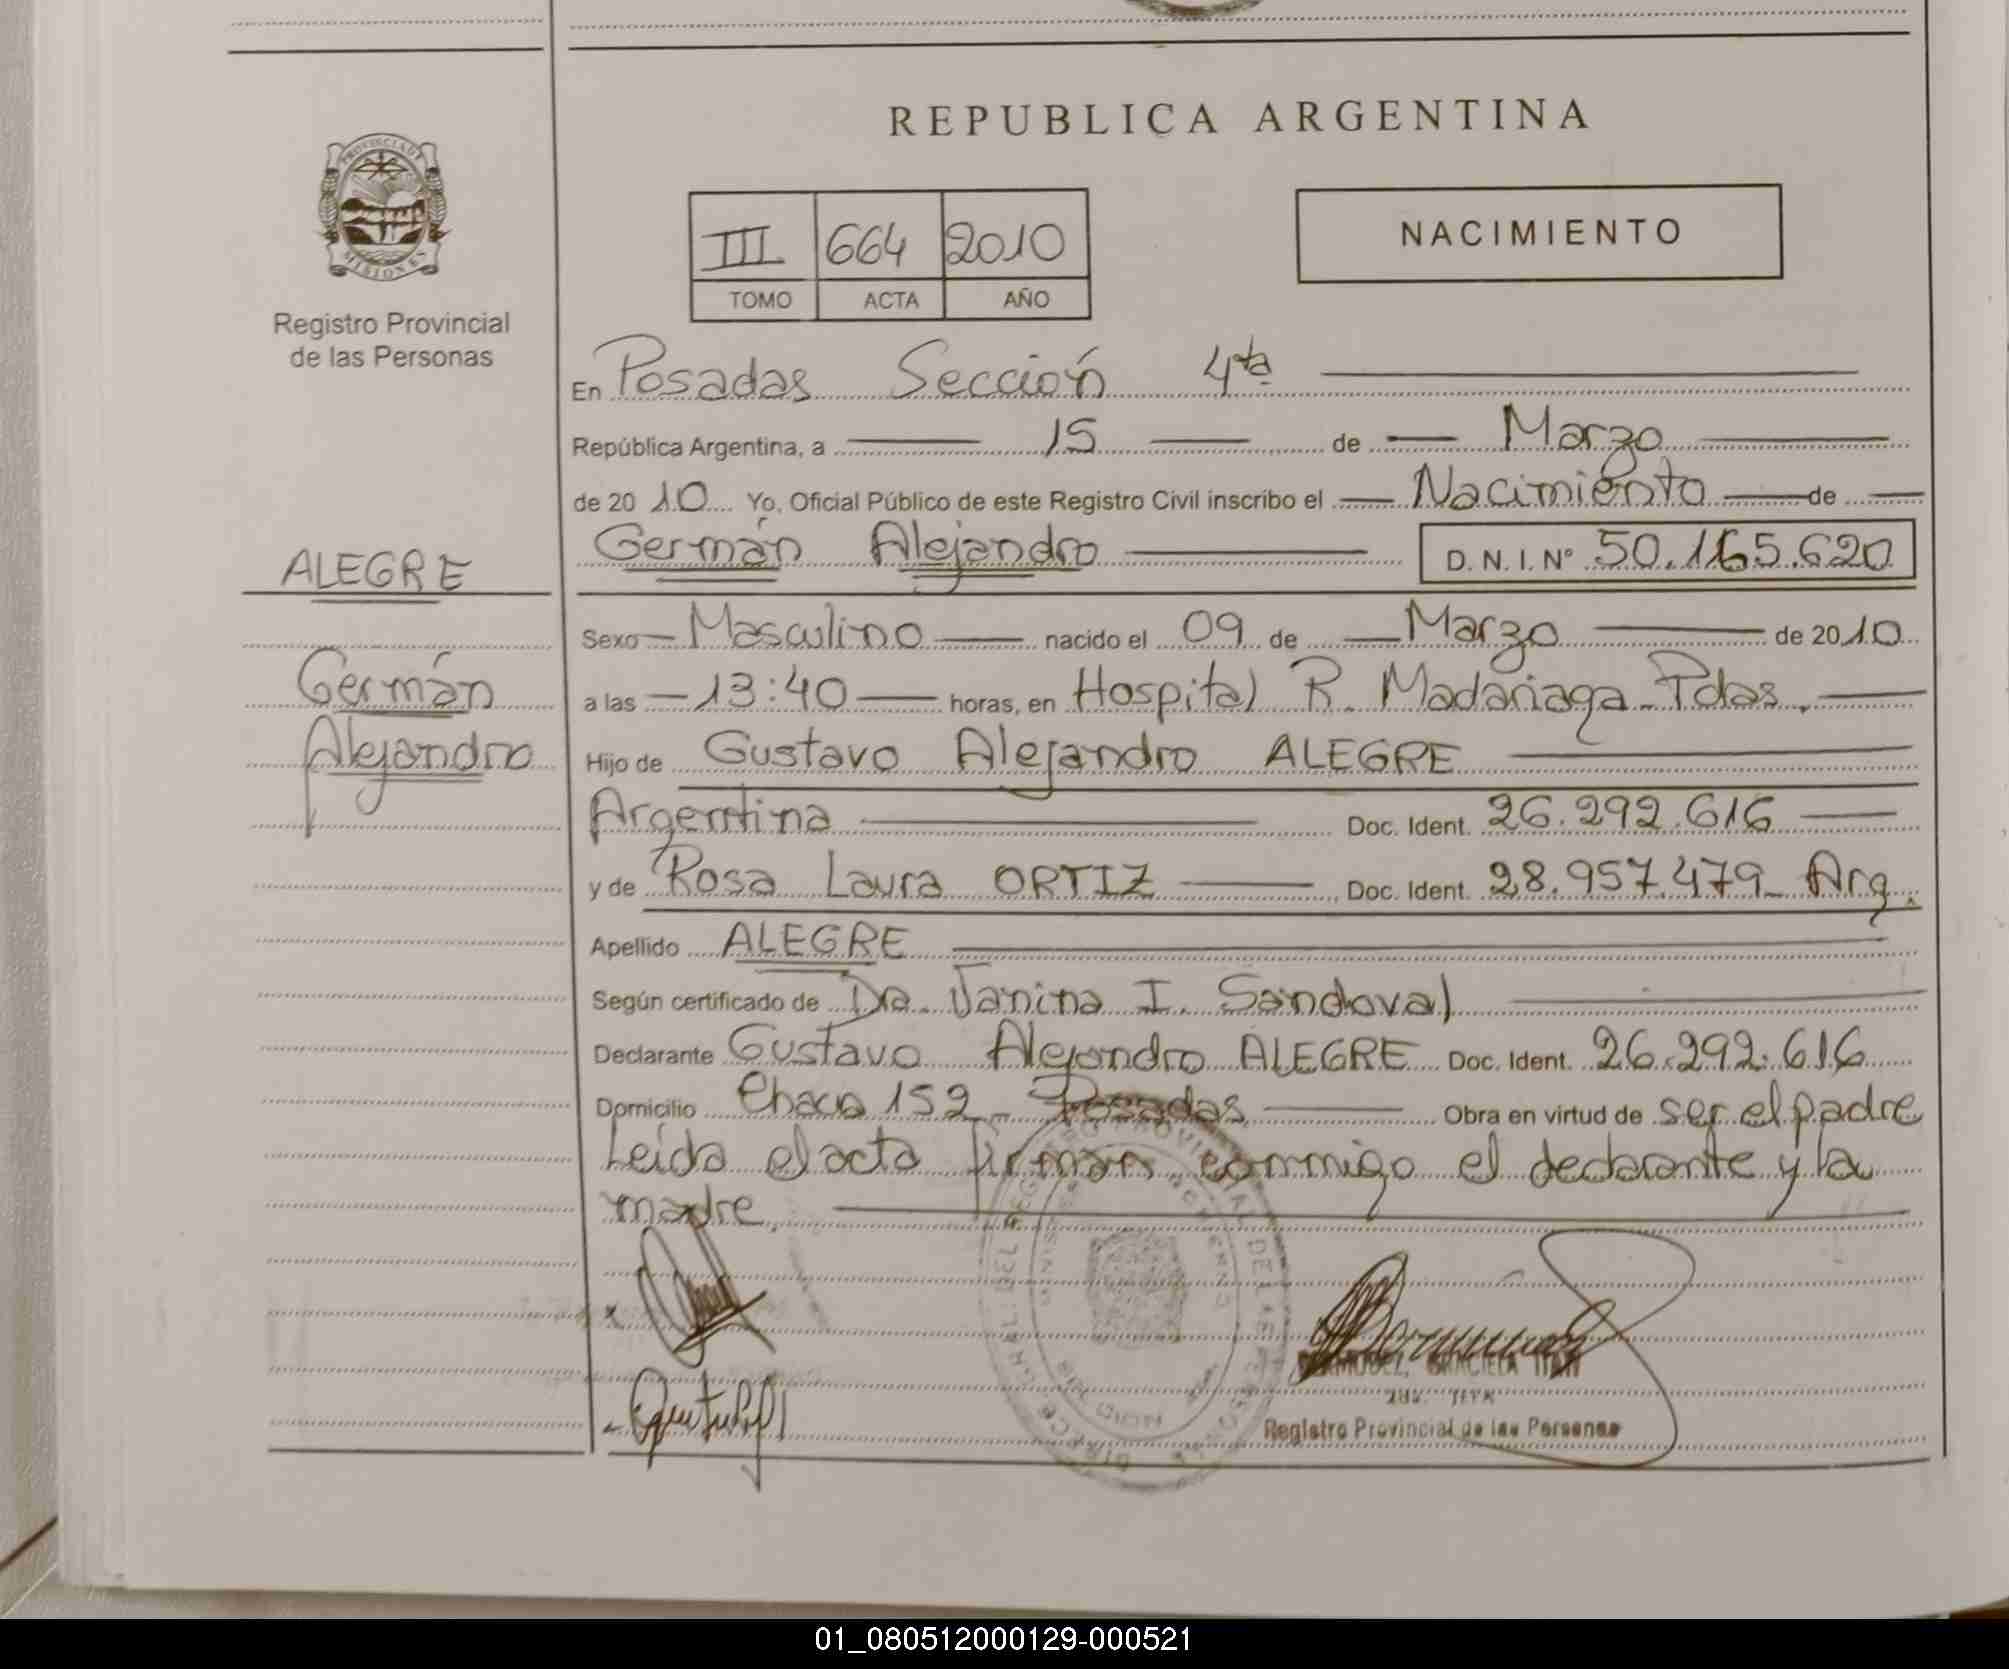 REPUBLICA ARGENTINA
PROVINCIA DE
MISIONES
Registro Provincial
de las Personas
III 664 2010
TOMO ACTA AÑO
NACIMIENTO
En Posadas Sección 4ta
República Argentina, a 15 de Marzo
de 2010 Yo, Oficial Público de este Registro Civil inscribo el Nacimiento de
Germán Alejandro D. N. I. N° 50.165.620
ALEGRE
Germán
Alejandro
Sexo Masculino nacido el 09 de Marzo de 2010
a las 13:40 horas, en Hospital R. Madariaga - Pdas.
Hijo de Gustavo Alejandro ALEGRE
Argentina Doc. Ident. 26.292.616
y de Rosa Laura ORTIZ Doc. Ident. 28.957.479 - Arg.
Apellido ALEGRE
Según certificado de Dra. Janina I. Sandoval
Declarante Gustavo Alejandro ALEGRE Doc. Ident. 26.292.616
Domicilio Chaco 152 - Posadas Obra en virtud de ser el padre
Leída el acta firman conmigo el declarante y la
madre.
GRACIELA
Registro Provincial de las Personas
01_080512000129-000521